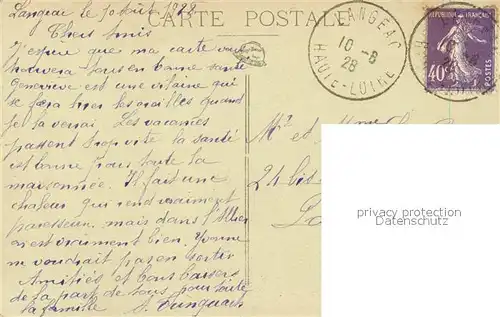 Langeac le 10 Août 1928
CARTE POSTALE
Chers Amis
J'espère que ma carte vous
trouvera tous en bonne santé
Geneviève est une vilaine qui
se fera tirer les oreilles quand
je la verrai. Les vacances
passent trop vite la santé
est bonne pour toute la
maisonnée. Il fait une
chaleur qui rend vraiment
paresseux. mais dans l'Allier
on est vraiment bien. Yvonne
ne voudrait pas en sortir
Amitiés et bons baisers
de la part de tous pour toute
la famille
LANGEAC
10 - 8
28
HAUTE-LOIRE
REPUBLIQUE FRANÇAISE
40c
Mr et Mme
24 bis
privacy protection
Datenschutz